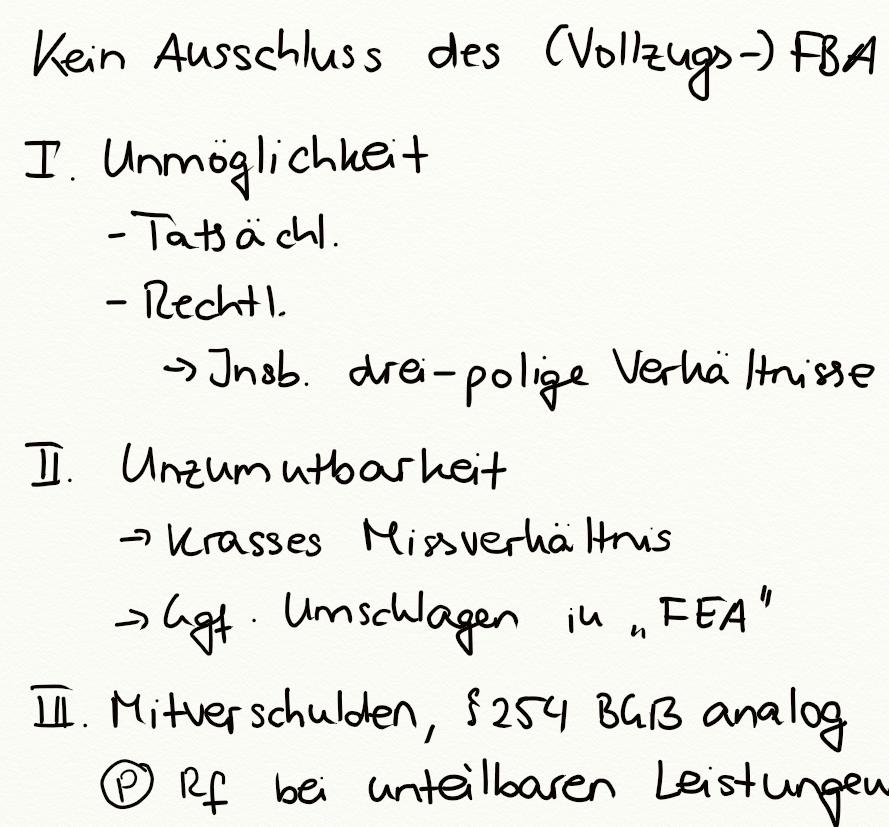 Kein Ausschluss des (Vollzugs-) FBA
I. Unmöglichkeit
- Tatsächl.
- Rechtl.
→ Insb. drei-polige Verhältnisse
II. Unzumutbarkeit
→ Krasses Missverhältnis
→ Ggf. Umschlagen in „FEA"
III. Mitverschulden, § 254 BGB analog
Ⓟ Rf bei unteilbaren Leistungen